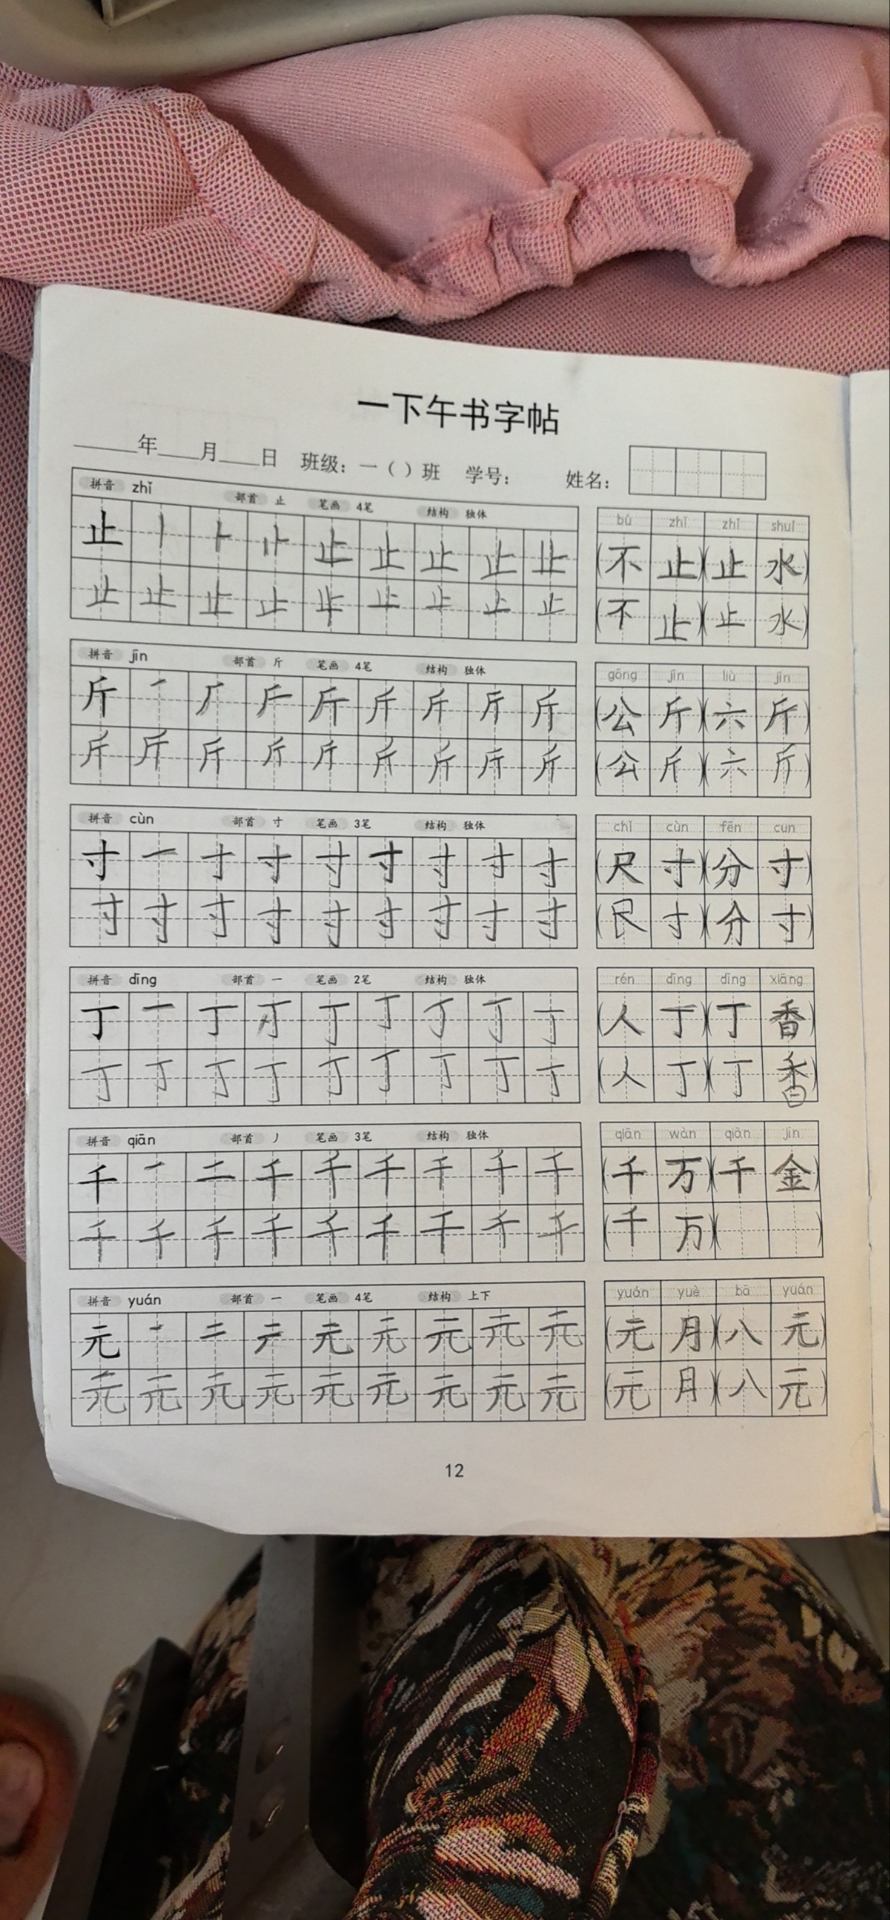 一下午书字帖
年 月 日 班级：一（ ）班 学号： 姓名：
拼音 zhǐ 部首 止 笔画 4笔 结构 独体
止 丨 ⺊ 止 止 止 止 止
止 止 止 止 止 止 止 止 止
bù zhǐ zhǐ shuǐ
（不 止）（止 水）
（不 止）（止 水）
拼音 jīn 部首 斤 笔画 4笔 结构 独体
斤 ㇒ 厂 斤 斤 斤 斤 斤 斤
斤 斤 斤 斤 斤 斤 斤 斤 斤
gōng jīn liù jīn
（公 斤）（六 斤）
（公 斤）（六 斤）
拼音 cùn 部首 寸 笔画 3笔 结构 独体
寸 一 寸 寸 寸 寸 寸 寸 寸
寸 寸 寸 寸 寸 寸 寸 寸 寸
chǐ cùn fēn cun
（尺 寸）（分 寸）
（尺 寸）（分 寸）
拼音 dīng 部首 一 笔画 2笔 结构 独体
丁 一 丁 丁 丁 丁 丁 丁 丁
丁 丁 丁 丁 丁 丁 丁 丁 丁
rén dīng dīng xiāng
（人 丁）（丁 香）
（人 丁）（丁 香）
拼音 qiān 部首 丿 笔画 3笔 结构 独体
千 ㇒ 二 千 千 千 千 千 千
千 千 千 千 千 千 千 千 千
qiān wàn qiān jīn
（千 万）（千 金）
（千 万）（ ）
拼音 yuán 部首 一 笔画 4笔 结构 上下
元 一 二 元 元 元 元 元
元 元 元 元 元 元 元 元 元
yuán yuè bā yuán
（元 月）（八 元）
（元 月）（八 元）
12